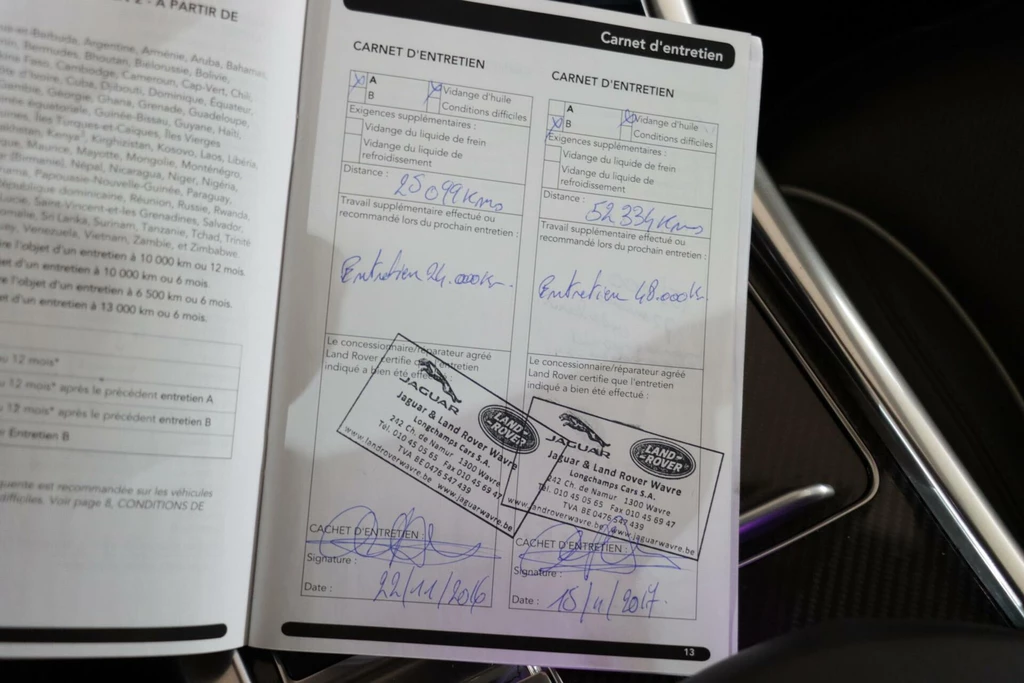 - À PARTIR DE
Argentine, Arménie, Aruba, Bahamas
Bermudes, Bhoutan, Biélorussie, Bolivie,
Faso, Cambodge, Cameroun, Cap-Vert, Chili,
d'Ivoire, Cuba, Djibouti, Dominique, Équateur,
Géorgie, Ghana, Grenade, Guadeloupe,
équatoriale, Guinée-Bissau, Guyane, Haïti,
Îles Turques-et-Caïques, Îles Vierges
Kenya, Kirghizistan, Kosovo, Laos, Libéria,
Maurice, Mayotte, Mongolie, Monténégro,
(Birmanie), Népal, Nicaragua, Niger, Nigéria,
Papouasie-Nouvelle-Guinée, Paraguay,
République dominicaine, Réunion, Russie, Rwanda,
Saint-Vincent-et-les Grenadines, Salvador,
Sri Lanka, Surinam, Tanzanie, Tchad, Trinité
Venezuela, Vietnam, Zambie, et Zimbabwe.
l'objet d'un entretien à 10 000 km ou 12 mois.
d'un entretien à 10 000 km ou 6 mois.
l'objet d'un entretien à 6 500 km ou 6 mois.
d'un entretien à 13 000 km ou 6 mois.
12 mois*
12 mois* après le précédent entretien A
12 mois* après le précédent entretien B
Entretien B
est recommandée sur les véhicules
difficiles. Voir page 8, CONDITIONS DE
Carnet d'entretien
CARNET D'ENTRETIEN
A
B
Vidange d'huile
Conditions difficiles
Exigences supplémentaires :
Vidange du liquide de frein
Vidange du liquide de
refroidissement
Distance : 25 099 Kms
Travail supplémentaire effectué ou
recommandé lors du prochain entretien :
Entretien 24.000k.
Le concessionnaire/réparateur agréé
Land Rover certifie que l'entretien
indiqué a bien été effectué :
JAGUAR
LAND ROVER
Jaguar & Land Rover Wavre
Longchamps Cars S.A.
242 Ch. de Namur 1300 Wavre
Tél. 010 45 05 65 Fax 010 45 69 47
TVA BE 0476 547 439
www.landroverwavre.be www.jaguarwavre.be
CACHET D'ENTRETIEN :
Signature :
Date : 22/11/2016
CARNET D'ENTRETIEN
A
B
Vidange d'huile
Conditions difficiles
Exigences supplémentaires :
Vidange du liquide de frein
Vidange du liquide de
refroidissement
Distance : 52 334 Kms
Travail supplémentaire effectué ou
recommandé lors du prochain entretien :
Entretien 48.000k.
Le concessionnaire/réparateur agréé
Land Rover certifie que l'entretien
indiqué a bien été effectué :
JAGUAR
LAND ROVER
Jaguar & Land Rover Wavre
Longchamps Cars S.A.
242 Ch. de Namur 1300 Wavre
Tél. 010 45 05 65 Fax 010 45 69 47
TVA BE 0476 547 439
www.landroverwavre.be www.jaguarwavre.be
CACHET D'ENTRETIEN :
Signature :
Date : 2017
13